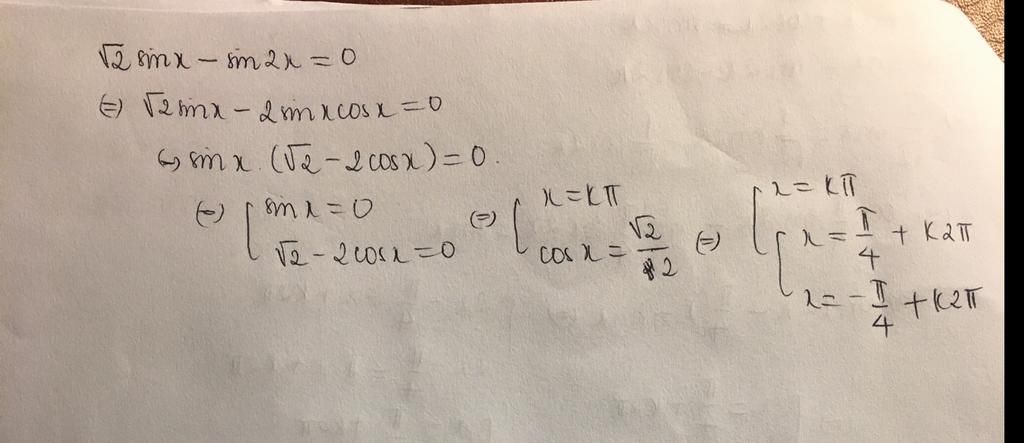 √2 sinx − sin2x = 0
⇔ √2sinx − 2sinxcosx = 0
⇔ sinx.(√2 − 2cosx) = 0.
⇔ [ sinx = 0 ⇔ [ x = kπ ⇔ [ x = kπ
√2 − 2cosx = 0 cosx = √2/2 [ x = π/4 + k2π
x = −π/4 + k2π